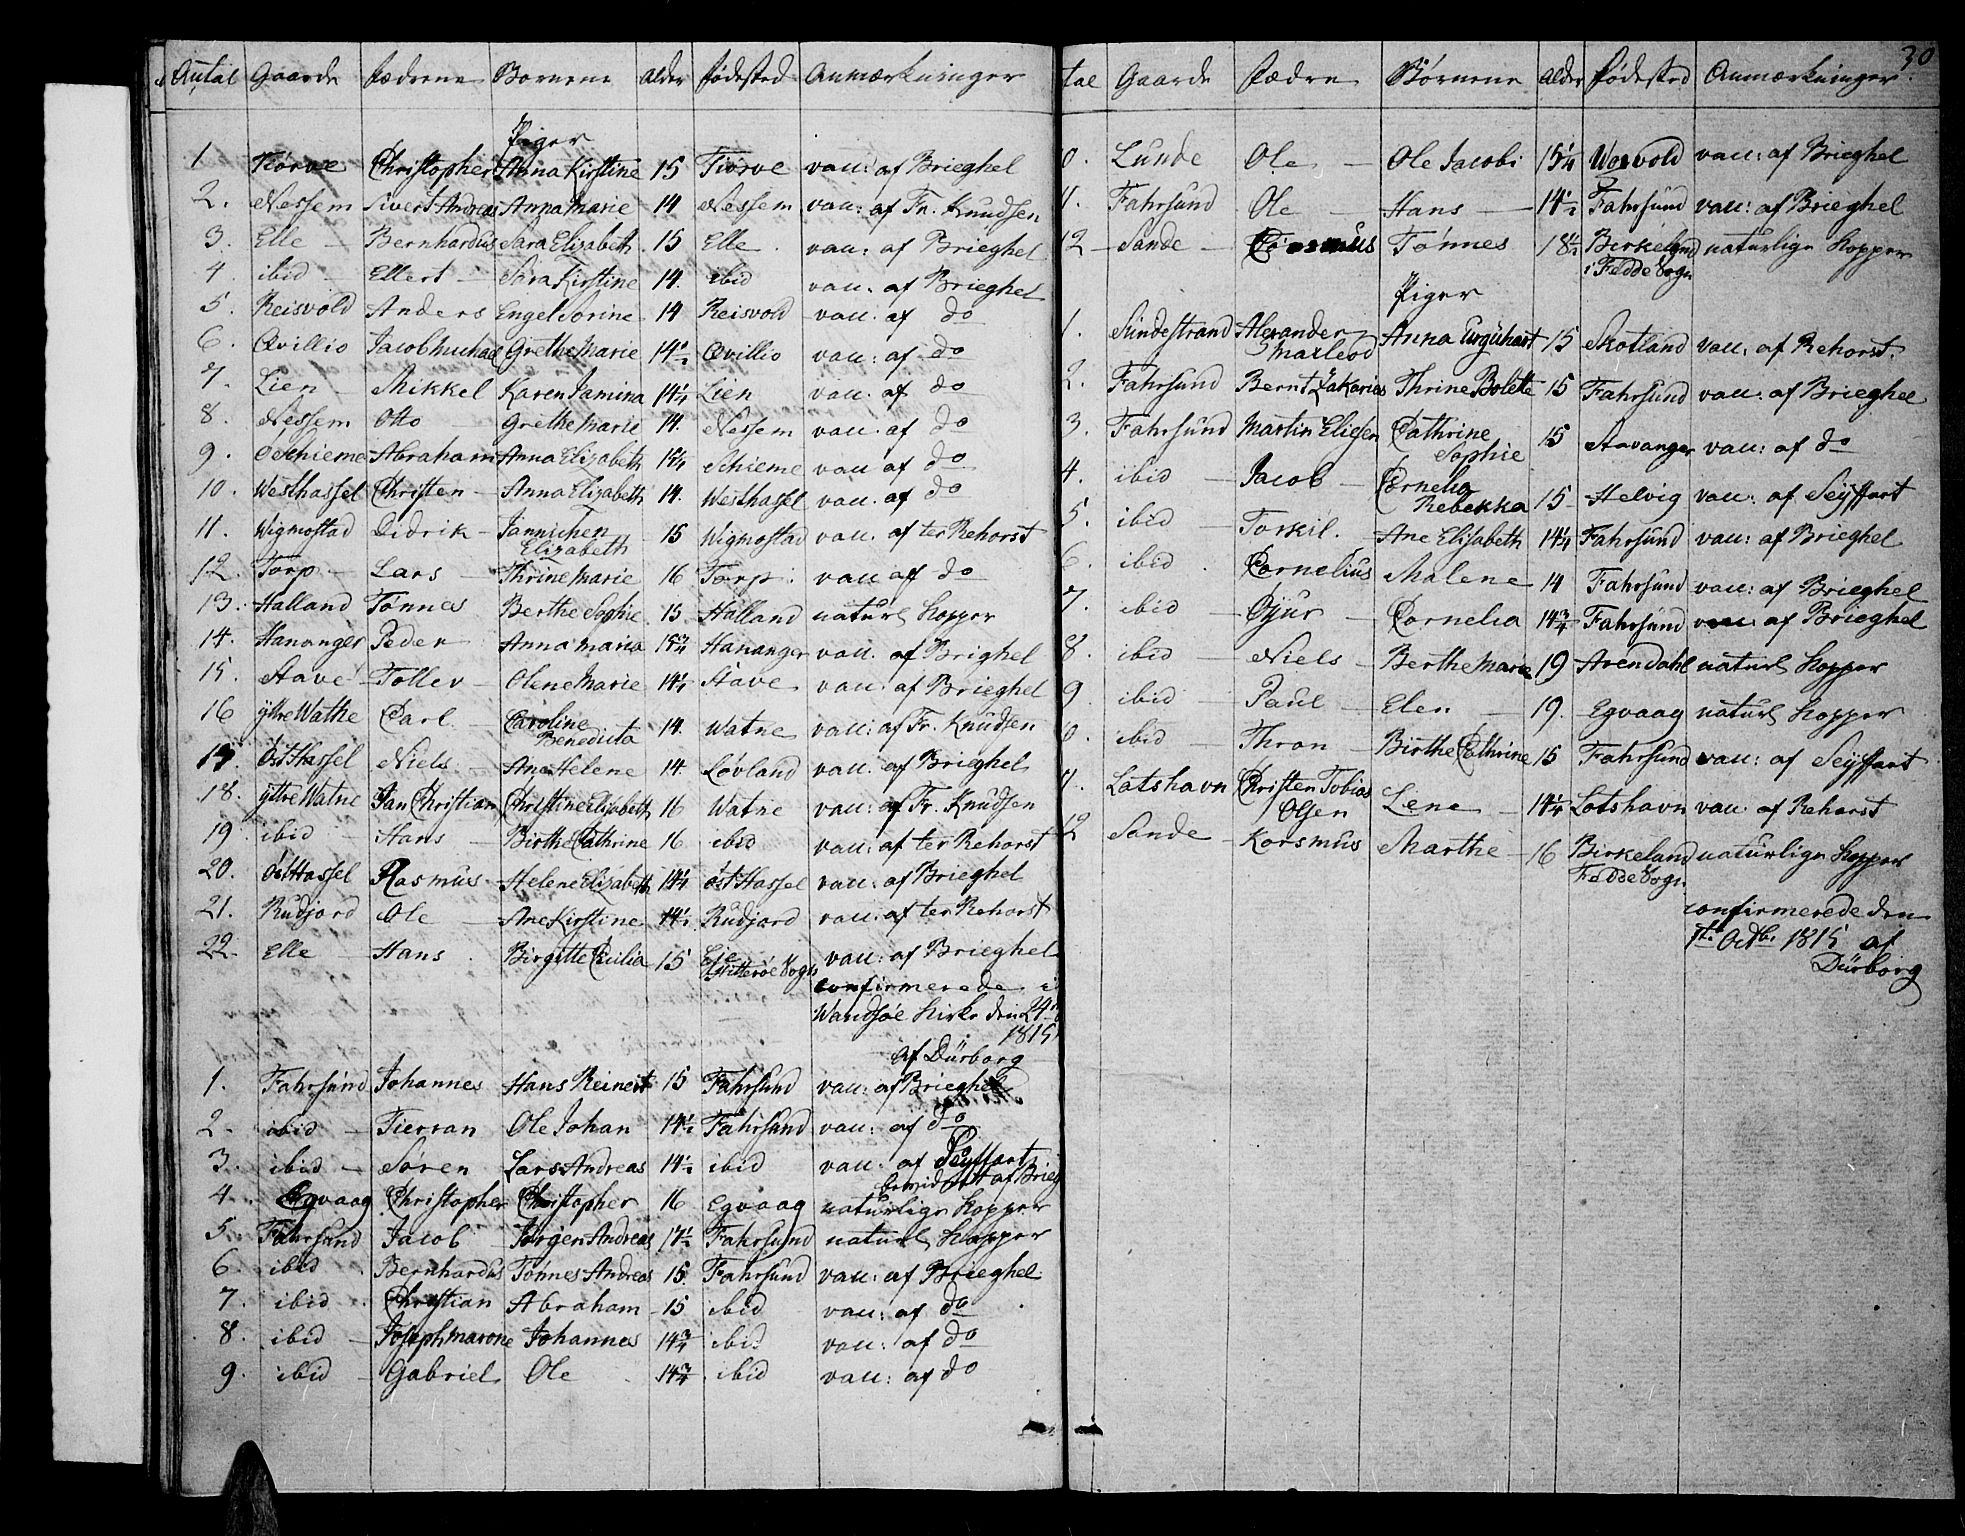 Antal Gaarde Fædrene Børnene Alder fødested Anmærkninger
Piger
1 Kiørve Christopher Anna Kirstine 15 Tiørve vau: af Brieghel
2. Nessem Sivert Andreas Anna Marie 14 Nessem vau: af Fr. Knudsen
3. Elle Bernhardus Sara Elizabeth 15 Elle vau: af Brieghel
4 ibid Ellert Sara Kirstine 14. ibid vau: af Brieghel
5. Reisvold Anders Engel Sorine 14 Reisvold vau: af do
6. Qvillio Jacob Michael Grethe Marie 14½ Qvillio vau: af do
7. Lien Mikkel Karen Jamina 14¼ Lien vau: af do
8. Nessem Otto Grethe Marie 14. Nessem vau: af do
9. Schieme Abraham Anna Elizabeth 15¼ Schieme vau af do
10. Westhassel Christen Anna Elizabeth 14. Westhassel vau: af do
11. Wigmostad Didrik Jannichen 15 Wigmostad vau: af ter Rehorst
Elizabeth
12. Torp Lars Thrine Marie 16 Torp vau af do
13. Halland Tønnes Berthe Sophie 15 Halland naturl Kopper
14. Hananger Peder Anna Maria 15¾ Hananger vau: af Brighel
15. Stave Tollev Oline Marie 14¼ Stave vau: af Brieghel
16 ÿttre Wathe Carl Caroline 14. Watne vau: af Fr. Knudsen
Benedicta
17. Øst Hassel Niels Ane Helene 14. Løvland vau: af Brieghel
18. ÿttre Watne Jan Christian Christine Elizabeth 16 Watne vau: af Fr. Knudsen
19. ibid Hans Birthe Cathrine 16 ibid vau: af ter Rehorst
20. Øst Hassel Rasmus Helene Elizabeth 14¼ øst Hassel vau: af Brieghel
21. Rudjord Ole Ane Kirstine 14½ Rudjord vau: af ter Rehorst
22. Elle Hans Birgitte Cicilia 15 Eie vau: af Brieghel
Hitterøe Sogn
confirmerede i
Wandsøe Kirke den 24
1815
af Dürborg
1. Fahrsund Johannes Hans Reinert 15 Fahrsund vau: af Brieghel
2. ibid Tierran Ole Johan 14½ Fahrsund vau: af do
3. ibid Søren Lars Andreas 14½ ibid vau: af Seyffart
4 Egvaag Christopher Christopher 16 Egvaag naturlige Kopper
5. Fahrsund Jacob Jørgen Andreas 17½ Fahrsund naturl Kopper
6. ibid Bernhardus Tønnes Andreas 15. Fahrsund vau: af Brieghel
7. ibid Christian Abraham 15 ibid vau: af do
8. ibid Joseph Marone Johannes 14¾ ibid vau: af do
9. ibid Gabriel Ole 14¾ ibid vau: af do
30
tal Gaarde Fædre Børnene Alder fødested Anmærkninger
0. Lunde Ole Ole Jacobi 15¼ Worvold vau: af Brieghel
11. Fahrsund Ole Hans 14½ Fahrsund vau: af Brieghel
12 Sande Corsmus Tønnes 18½ Birkeland naturlige Kopper
i Fedde Sogn
Piger
1. Sundestrand Alexander Anna Urguhart 15 Skotland vau: af Rehorst.
Macleod
2. Fahrsund Bernt Zakarias Thrine Bolette 15 Fahrsund vau: af Brieghel
3. Fahrsund Martin Eliesen Cathrine 15 Stavanger vau: af do
Sophie
4. ibid Jacob Cornelia
Rebekka 15 Helvig vau: af Seyffart
5. ibid Torkil. Ane Elisabeth 14¼ Fahrsund vau: af Brieghel
6. ibid Cornelius Malene 14 Fahrsund vau: af Brieghel
7. ibid Gjur Cornelia 14¾ Fahrsund vau: af Brieghel
8. ibid Niels Berthe Marie 19 Arendahl naturl Kopper
9. ibid Paul Elen 19. Egvaag naturl Kopper
0. ibid Thron Birthe Cathrine 15 Fahrsund vau: af Seyffart
11. Lotshavn Christen Tobias Lene 14¼ Lotshavn vau: af Rehorst
Olsen
12 Sande Korsmus Marthe 16 Birkeland naturlige Kopper
Fedde Sogn
confirmerede den
1te Octbr 1815 af
Dürborg